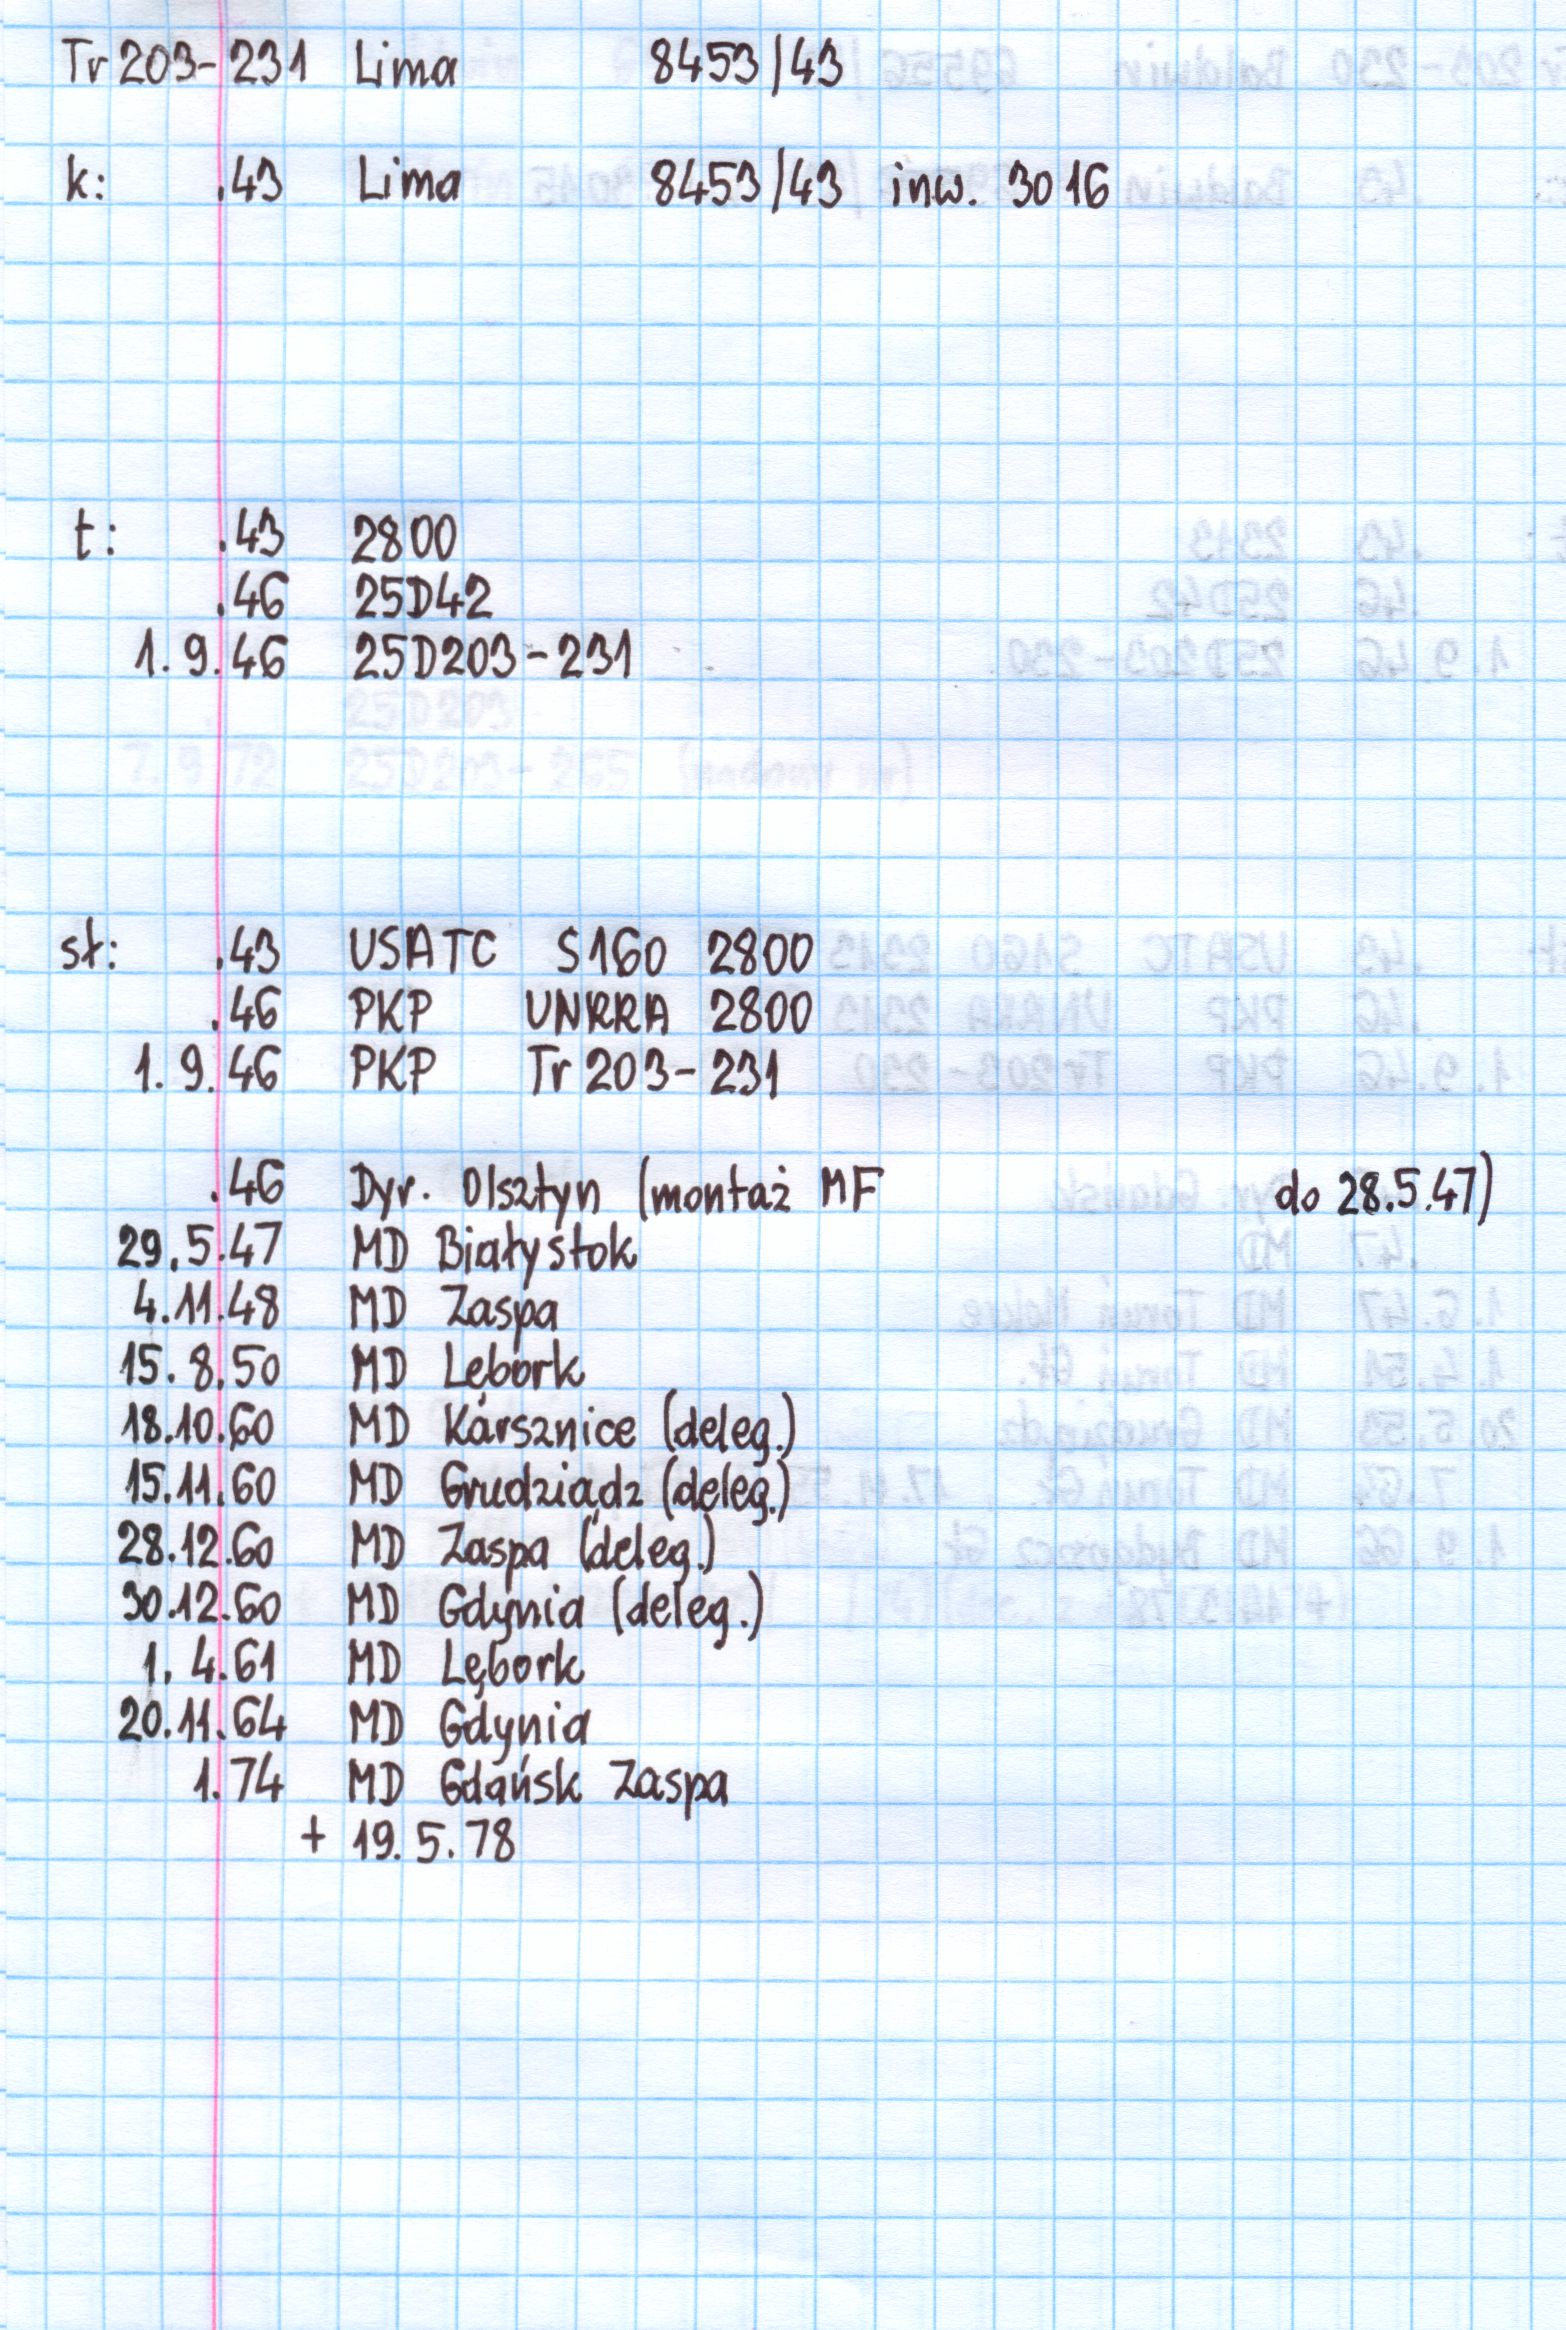 Tr 203-231 Lima 8453/43
k: .43 Lima 8453/43 inw. 3016
t: .43 2800
.46 25D42
1.9.46 25D203-231
25D203
7.9.72 25D203-265
st: .43 USATC S160 2800
.46 PKP UNRRA 2800
1.9.46 PKP Tr 203-231
.46 Dyr. Olsztyn (montaż MF do 28.5.47)
29.5.47 MD Białystok
4.11.48 MD Zaspa
15.8.50 MD Lębork
18.10.60 MD Karsznice (deleg.)
15.11.60 MD Grudziądz (deleg.)
28.12.60 MD Zaspa (deleg.)
30.12.60 MD Gdynia (deleg.)
1.4.61 MD Lębork
20.11.64 MD Gdynia
1.74 MD Gdańsk Zaspa
+ 19.5.78